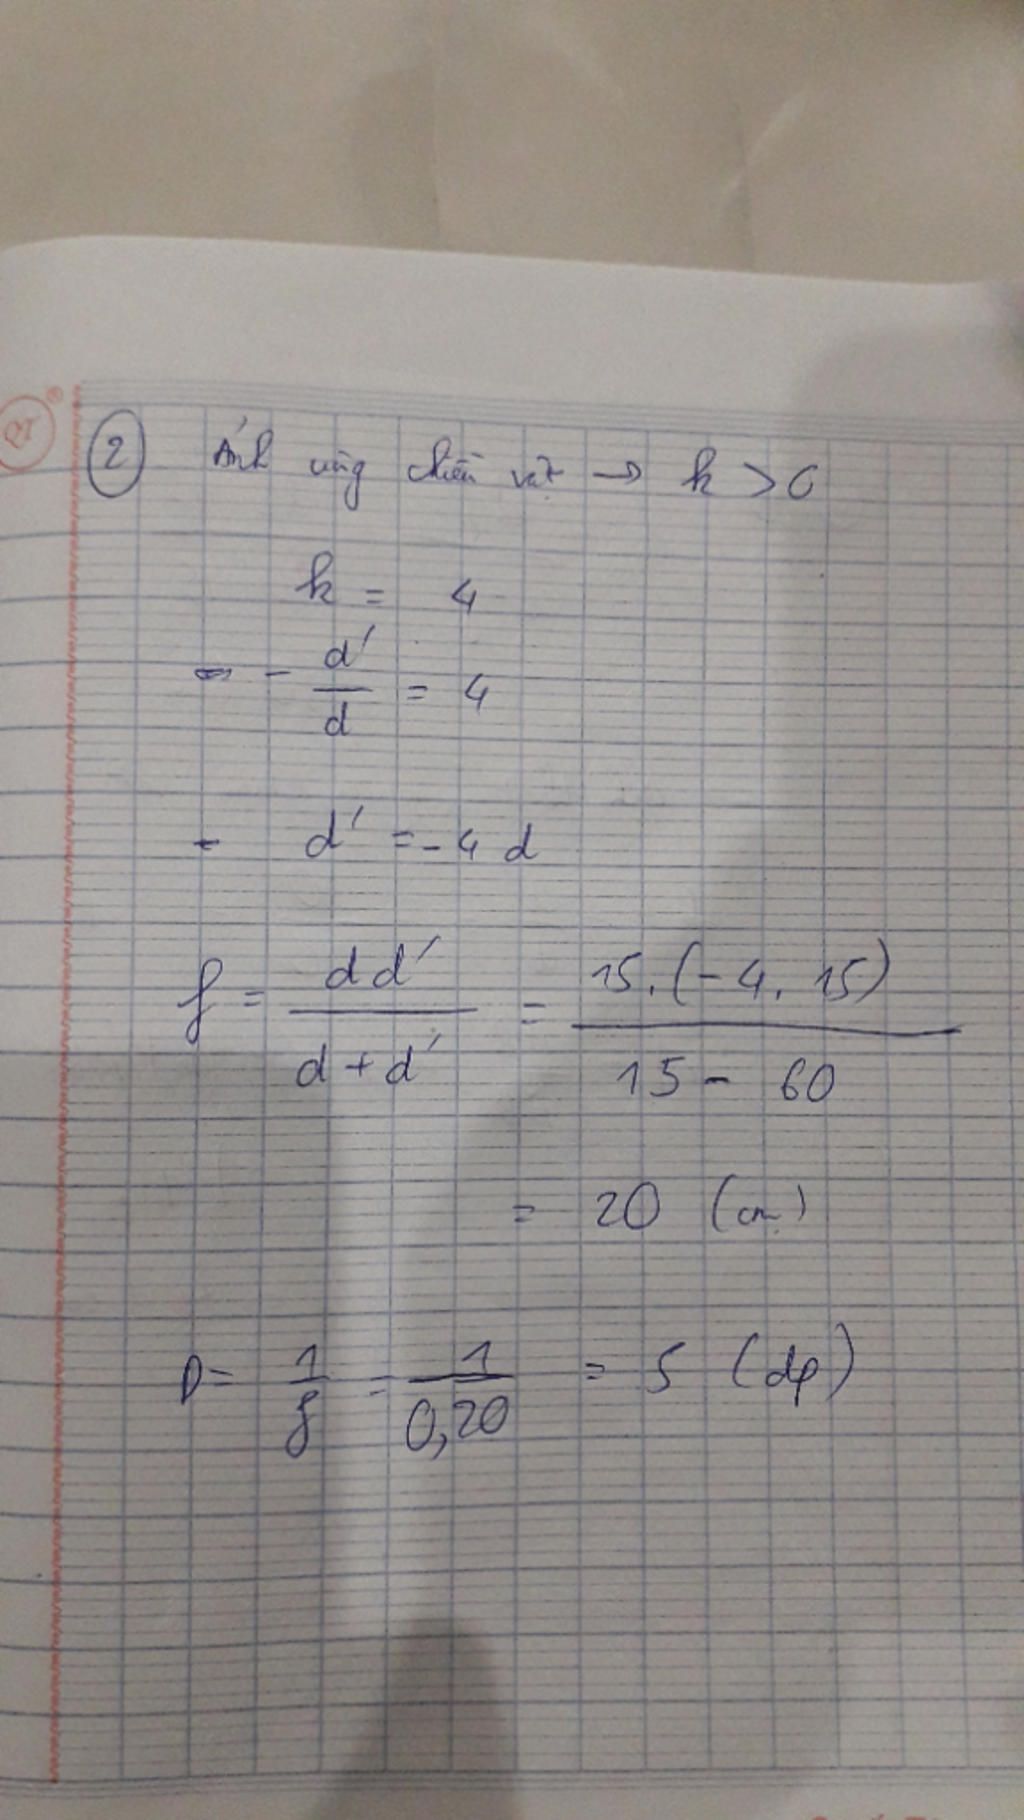 2 Ảnh cùng chiều vật → k > 0
k = 4
⇔ - d'/d = 4
- d' = -4 d
f = dd'/(d + d') = 15.(-4.15)/(15 - 60)
= 20 (cm)
D = 1/f = 1/0,20 = 5 (dp)